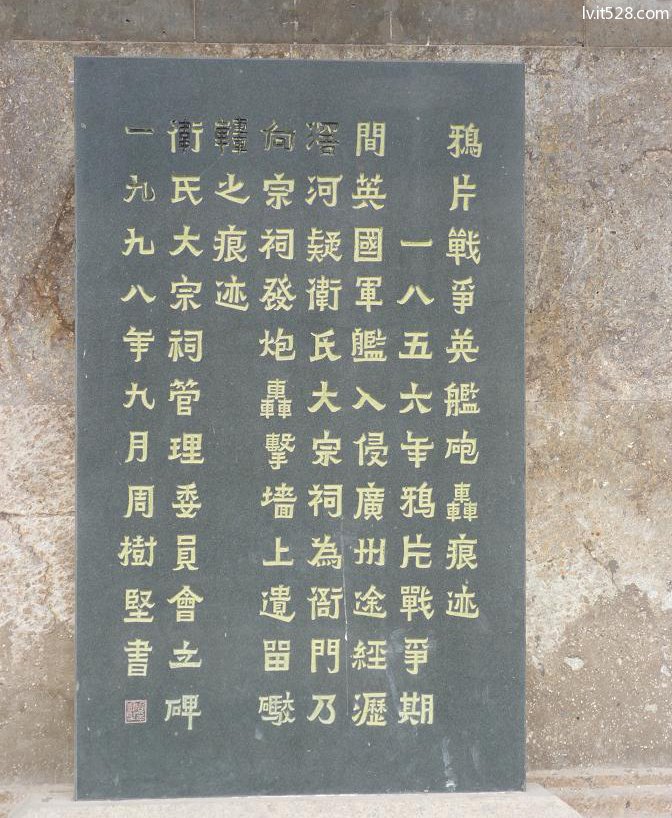 lvit528.com
鴉片戰爭英艦砲轟痕迹
一八五六年鴉片戰爭期
間英國軍艦入侵廣州途經瀝
滘河疑衛氏大宗祠為衙門乃
向宗祠發炮轟擊墻上遺留礮
轟之痕迹
衛氏大宗祠管理委員會立碑
一九九八年九月周樹堅書